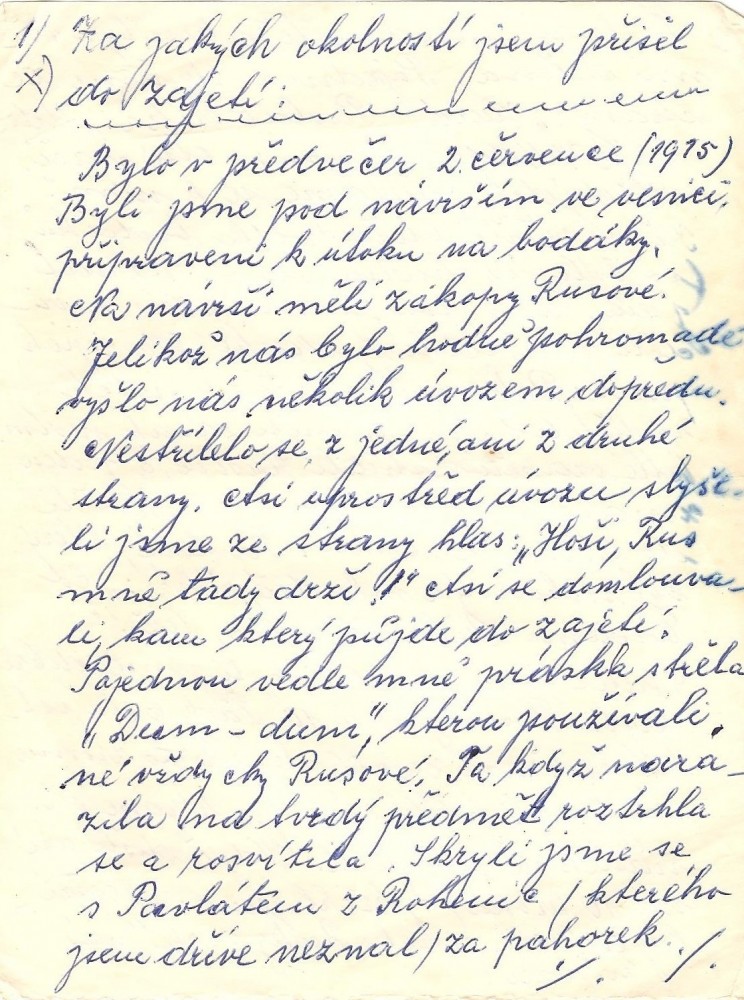 1) Za jakých okolností jsem přišel
x) do zajetí:
Bylo v předvečer 2. července (1915)
Byli jsme pod návrším ve vesnici,
připraveni k útoku na bodáky.
Na návrší měli zákopy Rusové.
Jelikož nás bylo hodně pohromadě
vyšlo nás několik úvozem dopředu.
Nestřílelo se, z jedné, ani z druhé
strany. Asi uprostřed úvozu slyše-
li jsme ze strany hlas: „Hoši, Rus
mně tady drží!" Asi se domlouva-
li, kam který půjde do zajetí.
Pojednou vedle mně práskla střela
„Dum-dum", kterou používali,
né vždycky Rusové. Ta když nara-
zila na tvrdý předmět roztrhla
se a rosvítila. Skryli jsme se
s Pavlátem z Rohenic (kterého
jsem dříve neznal) za pahorek. ./.
./.